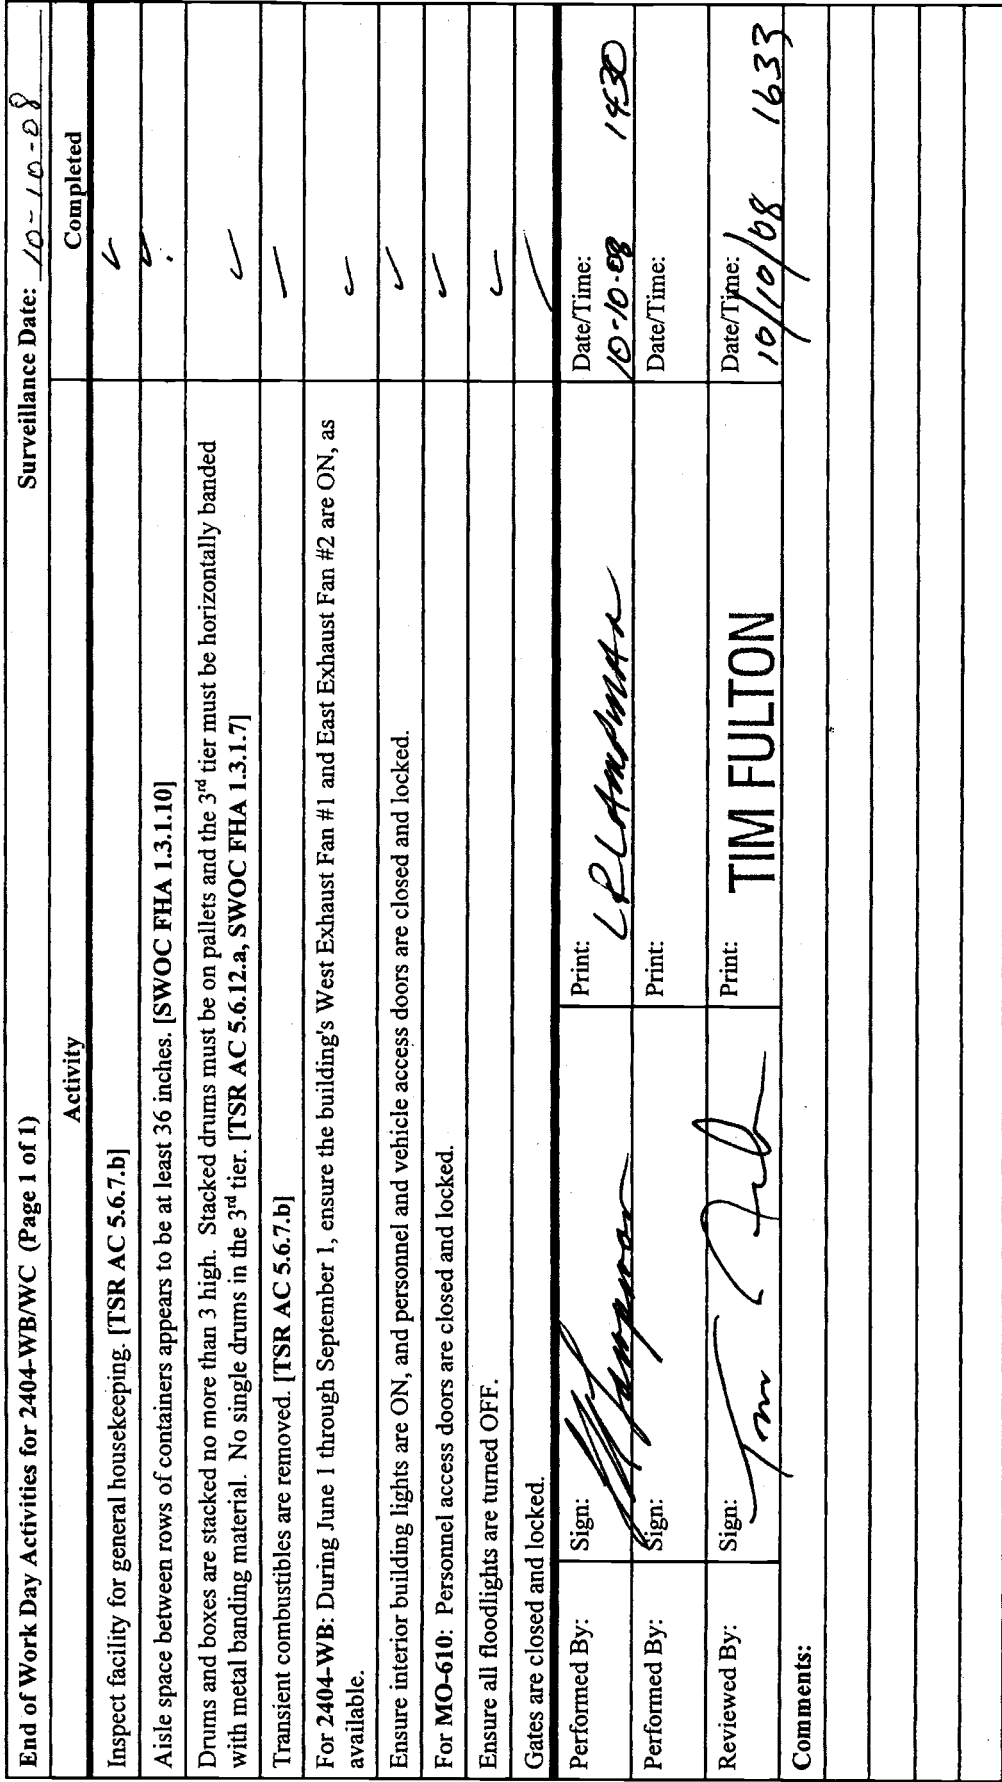 End of Work Day Activities for 2404-WB/WC (Page 1 of 1) Surveillance Date: 10-10-08
Activity Completed
Inspect facility for general housekeeping. [TSR AC 5.6.7.b] ✓
Aisle space between rows of containers appears to be at least 36 inches. [SWOC FHA 1.3.1.10] ✓
Drums and boxes are stacked no more than 3 high. Stacked drums must be on pallets and the 3rd tier must be horizontally banded
with metal banding material. No single drums in the 3rd tier. [TSR AC 5.6.12.a, SWOC FHA 1.3.1.7] ✓
Transient combustibles are removed. [TSR AC 5.6.7.b] ✓
For 2404-WB: During June 1 through September 1, ensure the building's West Exhaust Fan #1 and East Exhaust Fan #2 are ON, as
available. ✓
Ensure interior building lights are ON, and personnel and vehicle access doors are closed and locked. ✓
For MO-610: Personnel access doors are closed and locked. ✓
Ensure all floodlights are turned OFF. ✓
Gates are closed and locked. ✓
Performed By: Sign: Print: Date/Time:
10-10-08 1430
Performed By: Sign: Print: Date/Time:
Reviewed By: Sign: Print: TIM FULTON Date/Time:
10/10/08 1633
Comments: